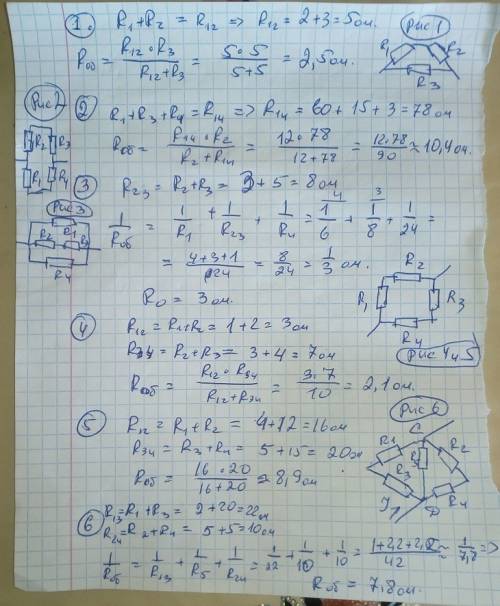 1. R₁+R₂ = R₁₂ => R₁₂ = 2+3 = 5 ом.
Rоб = R₁₂ • R₃ / R₁₂+R₃ = 5 • 5 / 5+5 = 2,5 ом.
Рис 1
R₁ R₂
R₃
Рис 2
R₂ R₃
R₁ R₄
2 R₁+R₃+R₄ = R₁₄ => R₁₄ = 60 + 15 + 3 = 78 ом
Rоб = R₁₄ • R₂ / R₂ + R₁₄ = 12 • 78 / 12 + 78 = 12.78 / 90 ≈ 10,4 ом.
3 R₂₃ = R₂+R₃ = 3 + 5 = 8 ом
Рис 3
R₁
R₂ R₃
R₄
1/Rоб = 1/R₁ + 1/R₂₃ + 1/R₄ = 1/6 + 1/8 + 1/24 =
4 3
= 4+3+1 / 24 = 8/24 = 1/3 ом.
R₀ = 3 ом.
R₂
R₁ R₃
R₄
Рис 4 и 5
4 R₁₂ = R₁+R₂ = 1+2 = 3 ом
R₃₄ = R₂+R₃ = 3+4 = 7 ом
Rоб = R₁₂ • R₃₄ / R₁₂+R₃₄ = 3.7 / 10 = 2,1 ом.
5 R₁₂ = R₁ + R₂ = 4+12 = 16 ом
R₃₄ = R₃ + R₄ = 5 + 15 = 20 ом
Rоб = 16 • 20 / 16 + 20 ≈ 8,9 ом
Рис 6
C
R₁ R₂
R₃ R₄
D
6 R₁₃ = R₁ + R₃ = 2 + 20 = 22 ом
R₂₄ = R₂ + R₄ = 5 + 5 = 10 ом
1/Rоб = 1/R₁₃ + 1/R₅ + 1/R₂₄ = 1/22 + 1/10 + 1/10 = ≈ 1/7,8 =>
Rоб = 7,8 ом.